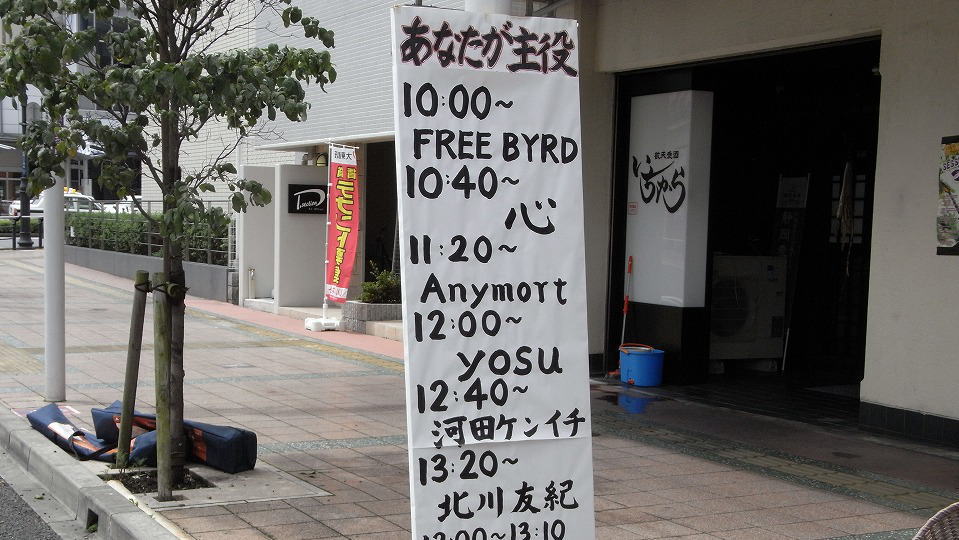 あなたが主役
10:00~
FREE BYRD
10:40~
心
11:20~
Anymort
12:00~
yosu
12:40~
河田ケンイチ
13:20~
北川友紀
13:10
テナント募集